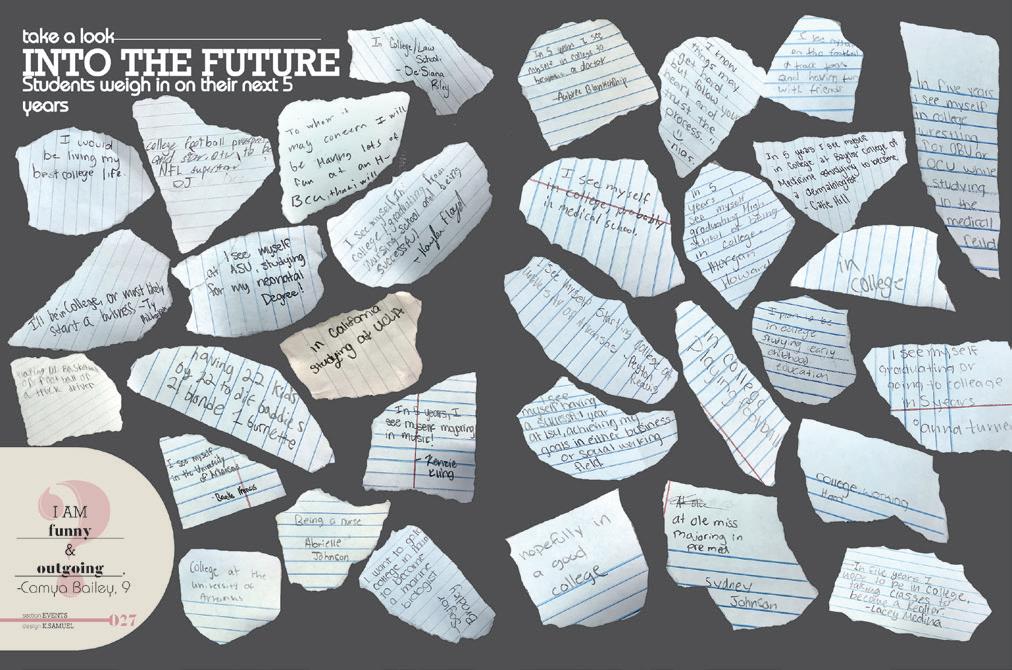 take a look
INTO THE FUTURE
Students weigh in on their next 5
years
In College/Law
School.
- De'Siana
Riley
I would
be living my
best college life.
college football prospect
and star, otw to be
NFL superstar
OJ
To whom it
may concern I will
be Having lots of
fun at an H-
Bcu, that i will
I see myself in
college / graduating from
nursing school and being
successful
- Naylan Floyd
I'll be in College, or most likely
start a business. - Ty
I see myself
at ASU, studying
for my neonatal
Degree!
in California
studying at UCLA
D1 Basketball
or football or
a truck driver
having 22 kids
by 22 to dif baddies
21 blonde 1 burnette
In 5 years, I
see myself majoring
in music!
- Kenzie
Kling
I see myself
in the University
of Arkansas
Being a nurse
Abrielle
Johnson
College at the
University of
Arkansas
I want to go to
college in
to become
a marine
biologist
I AM
funny
&
outgoing.
-Camya Bailey, 9
section EVENTS
design K.SAMUEL
027
In 5 years I see
myself in college to
become a doctor
- Aubree Blankenship
I know
things may
get hard
but follow your
heart and
trust the
process.
- nias.
on the football
& track team
and having fun
with friends
In five years
I see myself
in college
wrestling
for OBU or
OCU while
studying
in the
medical
feild
I see myself
in college probably
in medical school.
In 5
years I
see myself
graduating High
school & being
in college.
Morgan
Howard
In 5 years I see myself
in College at Baylor College of
Medicine studying to become
a dermatologist
- Cake Hill
in
college
I see myself starting college at
University of Arkansas.
- Peyton
Keeling
in college
Playing football
I plan to be
in college
studying early
childhood
education
I see myself
graduating or
going to colleage
in 5 years
I see
myself having
a successful year
at LSU, achieving my
goals in either business
or social working
field
College, working
Hard
hopefully in
a good
college
At ole
at ole miss
majoring in
premed
Sydney
Johnson
In five years I
hope to be in college,
taking classes to
become a Realtor
- Lacey Medina